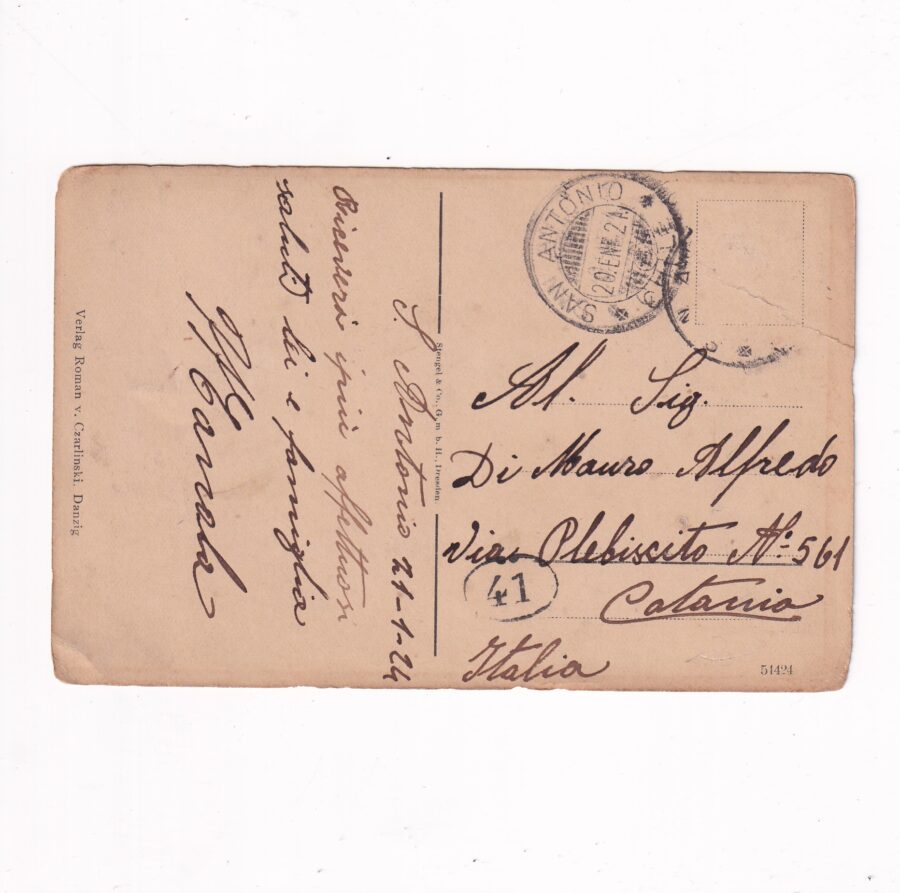 S. Antonio 21-1-24
Riceveri i piu affettuosi
saluti lei e famiglia
Verlag Roman v. Czarlinski. Danzig
Stengel & Co., G. m. b. H., Dresden
SAN ANTONIO
20.ENE.24
CHILE
Al. Sig.
Di Mauro Alfredo
Via Plebiscito N.º 561
41
Catania
Italia
51424